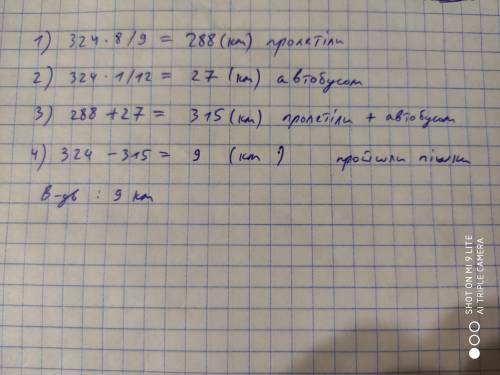 1) 324 · 8/9 = 288 (км) пролетіли
2) 324 · 1/12 = 27 (км) автобусом
3) 288 + 27 = 315 (км) пролетіли + автобусом
4) 324 - 315 = 9 (км) пройшли пішки
В-дь : 9 км
SHOT ON MI 9 LITE
AI TRIPLE CAMERA